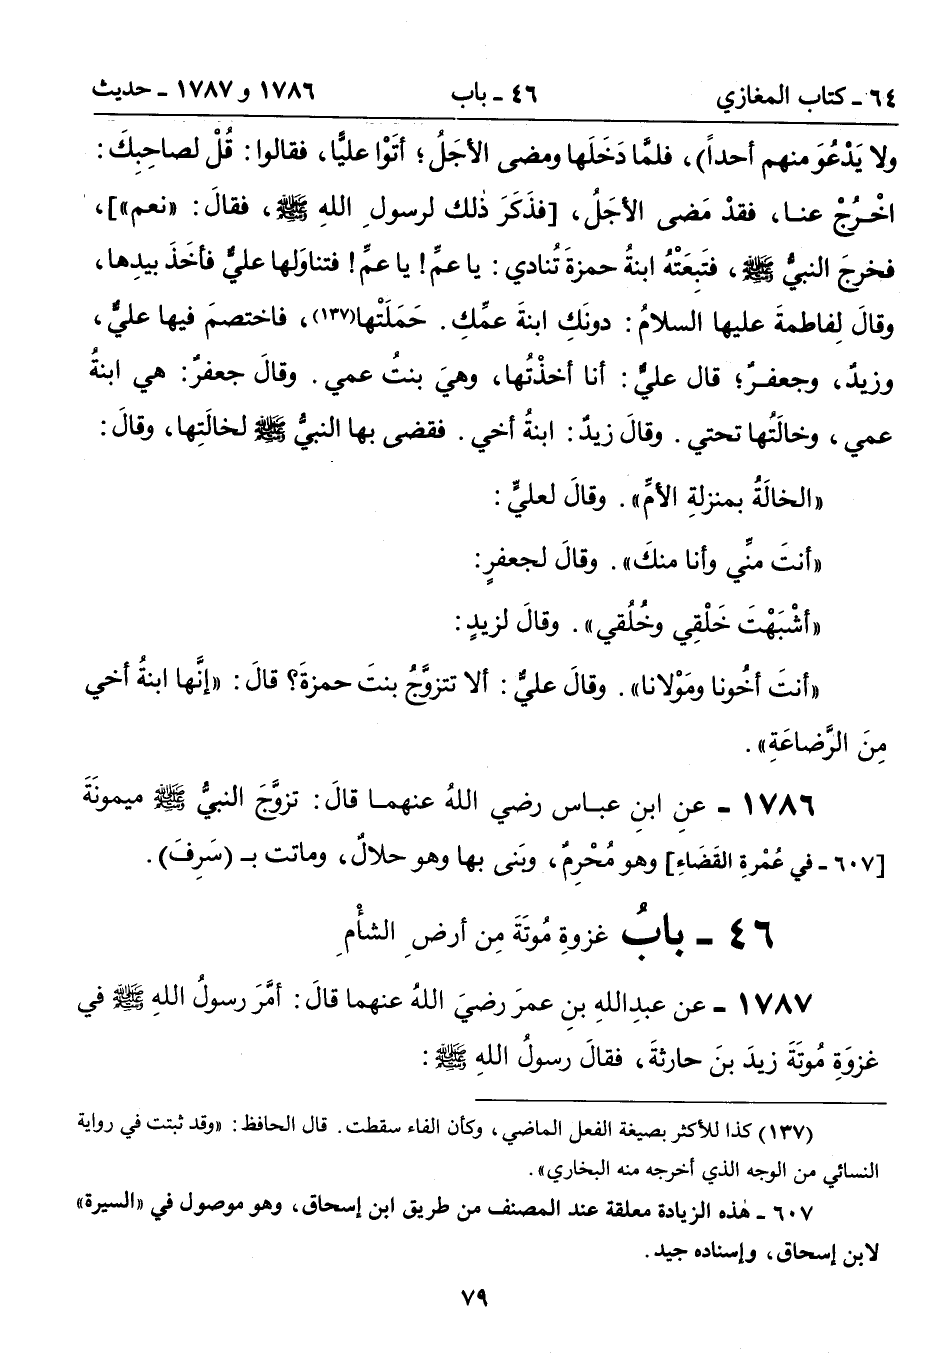 ٦٤ ـ كتاب المغازي ٤٦ ـ باب ١٧٨٦ و ١٧٨٧ ـ حديث
ولا يَدْعُوَ منهم أحداً)، فلمَّا دَخَلَها ومضى الأجَلُ؛ أتَوْا عليًّا، فقالوا: قُلْ لصاحِبِكَ:
اخْرُجْ عنا، فقدْ مَضى الأجَلُ، [فذَكَرَ ذٰلك لرسولِ اللهِ ﷺ، فقالَ: «نعم»]،
فخرجَ النبيُّ ﷺ، فتَبِعَتْهُ ابنةُ حمزةَ تُنادي: يا عمِّ! يا عمِّ! فتناوَلها عليٌّ فأخَذَ بيدِها،
وقالَ لِفاطمةَ عليها السلامُ: دونَكِ ابنةَ عمِّكِ. حَمَلَتْها(١٣٧)، فاختصمَ فيها عليٌّ،
وزيدٌ، وجعفرٌ؛ قال عليٌّ: أنا أخذْتُها، وهيَ بنتُ عمي. وقالَ جعفرٌ: هي ابنةُ
عمي، وخالَتُها تحتي. وقالَ زيدٌ: ابنةُ أخي. فقضى بها النبيُّ ﷺ لخالَتِها، وقالَ:
«الخالَةُ بمنزلةِ الأمِّ». وقالَ لعليٍّ:
«أنتَ منِّي وأنا منكَ». وقالَ لجعفرٍ:
«أشْبَهْتَ خَلْقِي وخُلُقي». وقالَ لزيدٍ:
«أنتَ أخُونا ومَوْلانا». وقالَ عليٌّ: ألا تتزوَّجُ بنتَ حمزةَ؟ قالَ: «إنَّها ابنةُ أخي
مِنَ الرَّضاعَةِ».
١٧٨٦ ـ عنِ ابنِ عباس رضي اللهُ عنهما قالَ: تزوَّجَ النبيُّ ﷺ ميمونَةَ
[٦٠٧ ـ في عُمْرةِ القَضَاءِ] وهو مُحْرِمٌ، وبَنى بها وهو حلالٌ، وماتت بـ (سَرِفَ).
٤٦ ـ بابُ غزوةِ مُوتَةَ مِن أرضِ الشأْمِ
١٧٨٧ ـ عن عبدِاللهِ بنِ عمرَ رضيَ اللهُ عنهما قالَ: أمَّرَ رسولُ اللهِ ﷺ في
غزوَةِ مُوتَةَ زيدَ بنَ حارثةَ، فقالَ رسولُ اللهِ ﷺ:
(١٣٧) كذا للأكثر بصيغة الفعل الماضي، وكأن الفاء سقطت. قال الحافظ: «وقد ثبتت في رواية
النسائي من الوجه الذي أخرجه منه البخاري».
٦٠٧ ـ هٰذه الزيادة معلقة عند المصنف من طريق ابن إسحاق، وهو موصول في «السيرة»
لابن إسحاق، وإسناده جيد.
٧٩